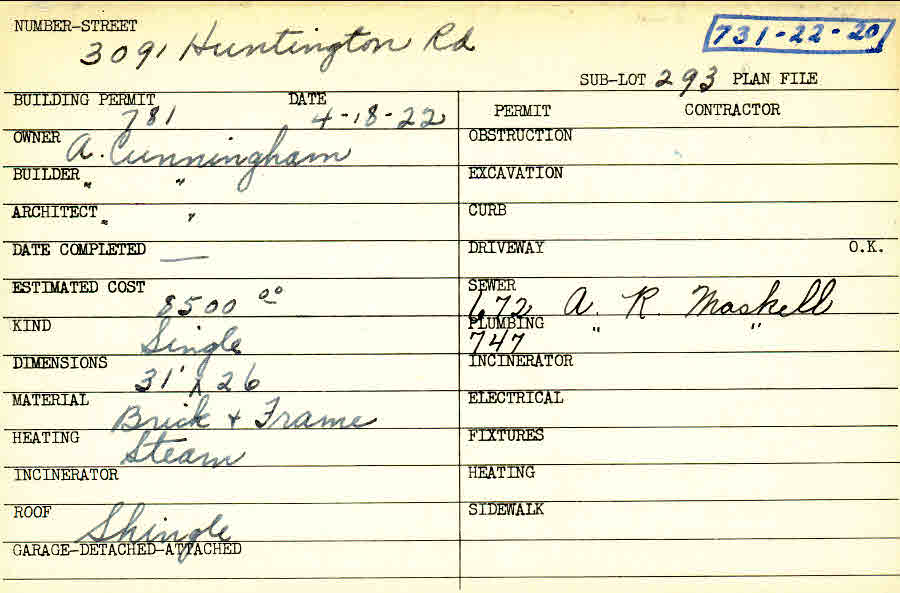 NUMBER-STREET
3091 Huntington Rd
731-22-20
SUB-LOT 293 PLAN FILE
BUILDING PERMIT DATE
781 4-18-22
PERMIT CONTRACTOR
OWNER A. Cunningham
OBSTRUCTION
BUILDER " "
EXCAVATION
ARCHITECT " "
CURB
DATE COMPLETED —
DRIVEWAY O.K.
ESTIMATED COST
8500 00
SEWER
672 A. R. Maskell
KIND
Single
PLUMBING " "
747
DIMENSIONS
31' x 26
INCINERATOR
MATERIAL
Brick + Frame
ELECTRICAL
HEATING
Steam
FIXTURES
INCINERATOR
HEATING
ROOF
Shingle
SIDEWALK
GARAGE-DETACHED-ATTACHED